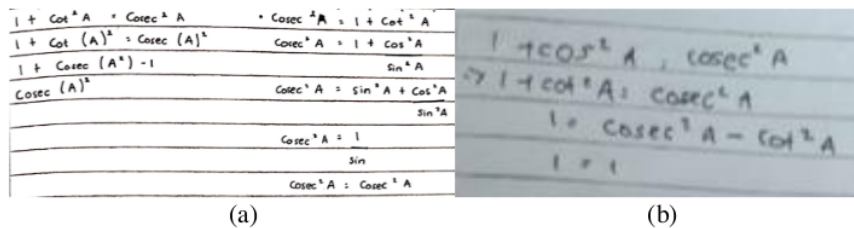 1 + Cot² A = Cosec² A
1 + Cot (A)² = Cosec (A)²
1 + Cosec (A²) - 1
Cosec (A)²
• Cosec ²A = 1 + Cot ² A
Cosec² A = 1 + Cos²A
Sin² A
Cosec² A = Sin²A + Cos²A
Sin²A
Cosec² A = 1
Sin
Cosec² A = Cosec² A
(a)
1 + cos² A = cosec² A
=> 1 + cot² A = cosec² A
1 = cosec² A - cot² A
1 = 1
(b)